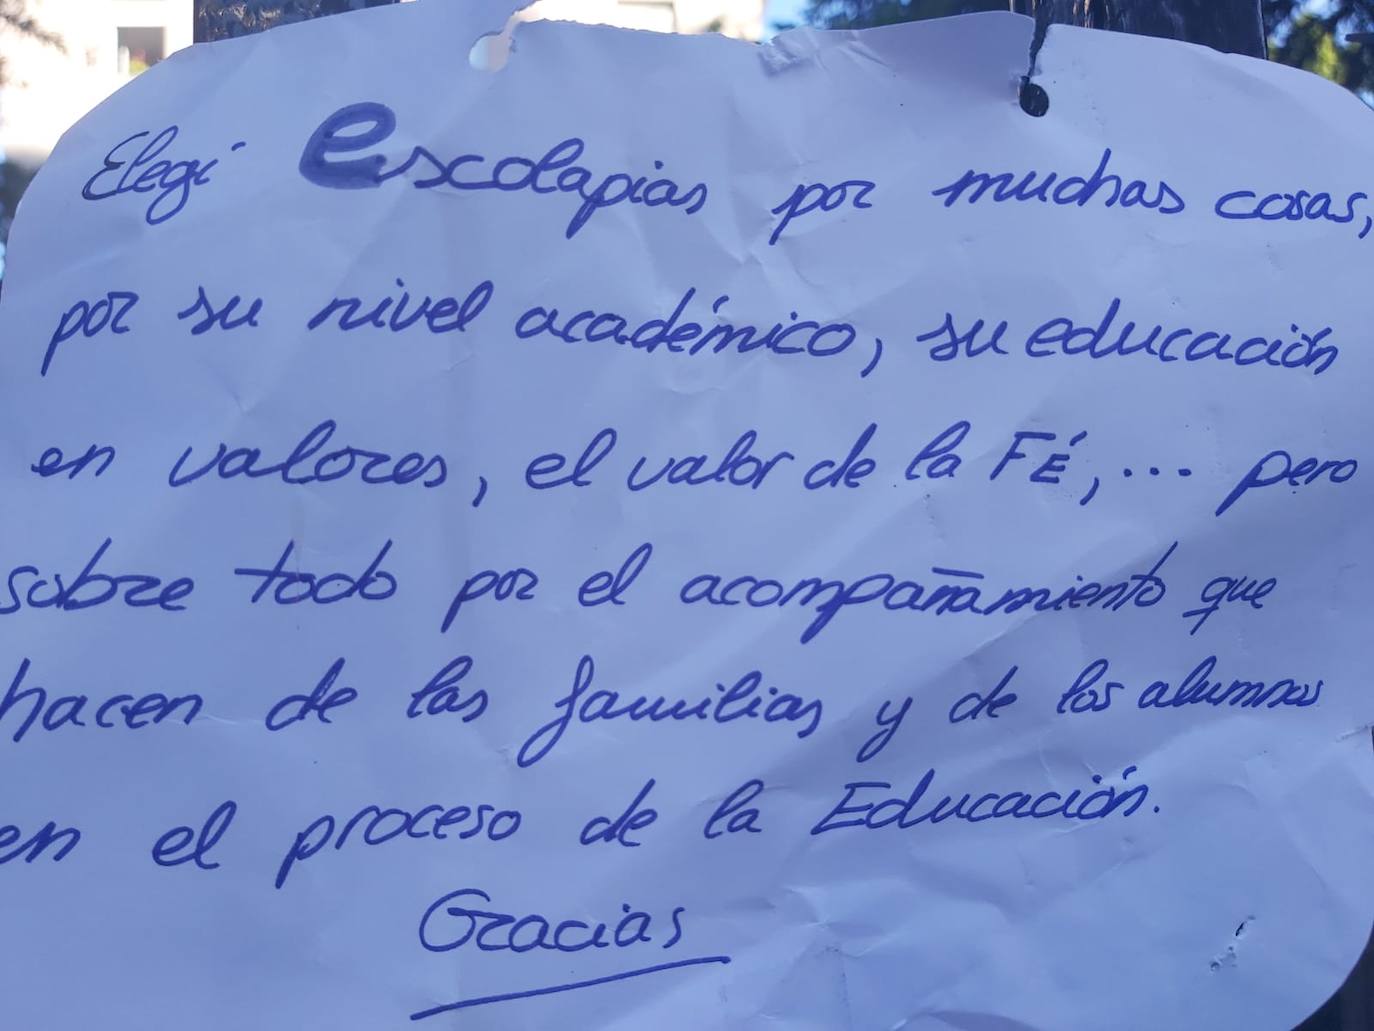 Elegí Escolapias por muchas cosas,
por su nivel académico, su educación
en valores, el valor de la FÉ, ... pero
sobre todo por el acompañamiento que
hacen de las familias y de los alumnos
en el proceso de la Educación.
Gracias